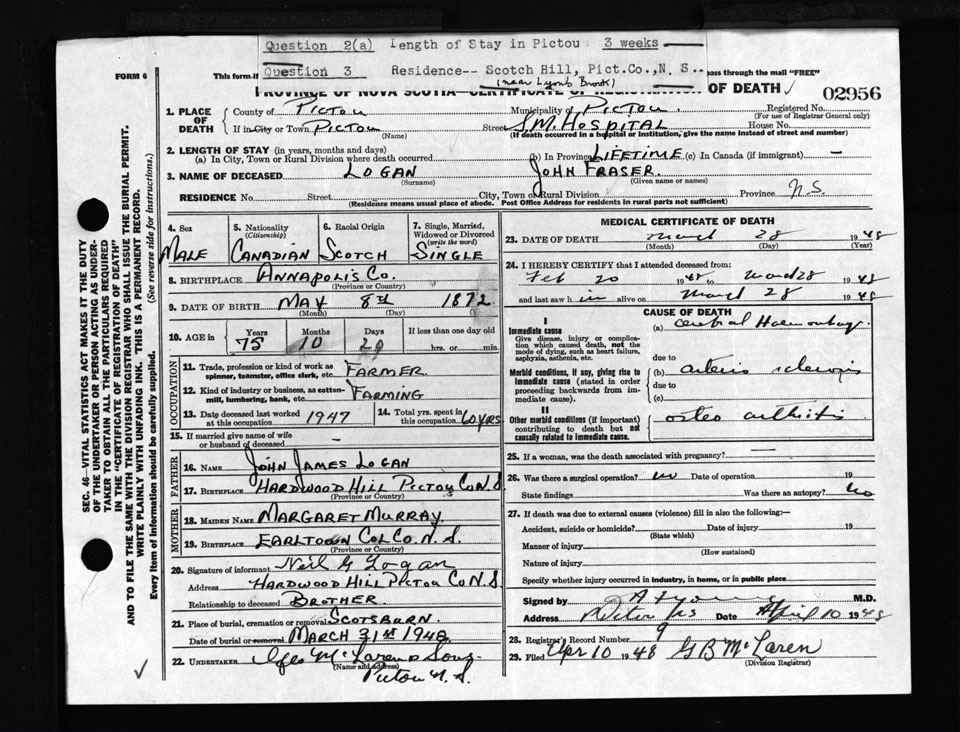 Question 2(a) Length of Stay in Pictou 3 weeks
Question 3 Residence-- Scotch Hill, Pict.Co.,N. S..
(near Lyons Brook)
FORM 6
This form if
pass through the mail "FREE"
PROVINCE OF NOVA SCOTIA—CERTIFICATE OF REGISTRATION OF DEATH
02956
1. PLACE OF DEATH
County of PICTOU Municipality of PICTOU Registered No.
(For use of Registrar General only)
If in City or Town PICTOU Street S.M. HOSPITAL House No.
(Name) (If death occurred in a hospital or institution, give the name instead of street and number)
2. LENGTH OF STAY (in years, months and days)
(a) In City, Town or Rural Division where death occurred (b) In Province LIFETIME (c) In Canada (if immigrant) —
3. NAME OF DECEASED LOGAN JOHN FRASER.
(Surname) (Given name or names)
RESIDENCE No. Street City, Town or Rural Division Province N.S.
(Residence means usual place of abode. Post Office Address for residents in rural parts not sufficient)
4. Sex MALE
5. Nationality (Citizenship) CANADIAN
6. Racial Origin SCOTCH
7. Single, Married, Widowed or Divorced (write the word) SINGLE
8. BIRTHPLACE ANNAPOLIS CO.
(Province or Country)
9. DATE OF BIRTH MAY 8th 1872
(Month) (Day)
10. AGE in Years 75 Months 10 Days 20 If less than one day old
hrs. or min.
OCCUPATION
11. Trade, profession or kind of work as spinner, teamster, office clerk, etc. FARMER
12. Kind of industry or business, as cotton-mill, lumbering, bank, etc. FARMING
13. Date deceased last worked at this occupation 1947
14. Total yrs. spent in this occupation 60 YRS
15. If married give name of wife or husband of deceased —
FATHER
16. NAME JOHN JAMES LOGAN
17. BIRTHPLACE HARDWOOD HILL PICTOU CO N.S.
(Province or Country)
MOTHER
18. MAIDEN NAME MARGARET MURRAY
19. BIRTHPLACE EARLTOWN COL CO. N.S.
(Province or Country)
20. Signature of informant Neil G Logan
Address HARDWOOD HILL PICTOU CO N.S.
Relationship to deceased BROTHER.
21. Place of burial, cremation or removal SCOTSBURN.
Date of burial or removal MARCH 31st 1948
22. UNDERTAKER McLaren & Sons
(Name and address) Pictou N.S.
MEDICAL CERTIFICATE OF DEATH
23. DATE OF DEATH March 28 1948
(Month) (Day) (Year)
24. I HEREBY CERTIFY that I attended deceased from:
Feb 20 1948 to March 28 1948
and last saw him alive on March 28 1948
CAUSE OF DEATH
I
Immediate cause
Give disease, injury or complication which caused death, not the mode of dying, such as heart failure, asphyxia, asthenia, etc.
(a) Cerebral Haemorrhage
due to
Morbid conditions, if any, giving rise to immediate cause (stated in order proceeding backwards from immediate cause).
(b) arterio sclerosis
due to
(c)
II
Other morbid conditions (if important) contributing to death but not causally related to immediate cause.
osteo arthritis
25. If a woman, was the death associated with pregnancy? —
26. Was there a surgical operation? no Date of operation 19
State findings Was there an autopsy? no
27. If death was due to external causes (violence) fill in also the following:—
Accident, suicide or homicide? Date of injury 19
(State which)
Manner of injury
(How sustained)
Nature of injury
Specify whether injury occurred in industry, in home, or in public place
Signed by M.D.
Address Pictou NS Date April 10 1948
28. Registrar's Record Number 9
29. Filed Apr 10 1948 G B McLaren
(Division Registrar)
SEC. 46—VITAL STATISTICS ACT MAKES IT THE DUTY
OF THE UNDERTAKER OR PERSON ACTING AS UNDER-
TAKER TO OBTAIN ALL THE PARTICULARS REQUIRED
IN THE "CERTIFICATE OF REGISTRATION OF DEATH"
AND TO FILE THE SAME WITH THE DIVISION REGISTRAR WHO SHALL ISSUE THE BURIAL PERMIT.
WRITE PLAINLY WITH UNFADING INK. THIS IS A PERMANENT RECORD.
Every item of information should be carefully supplied. (See reverse side for instructions.)